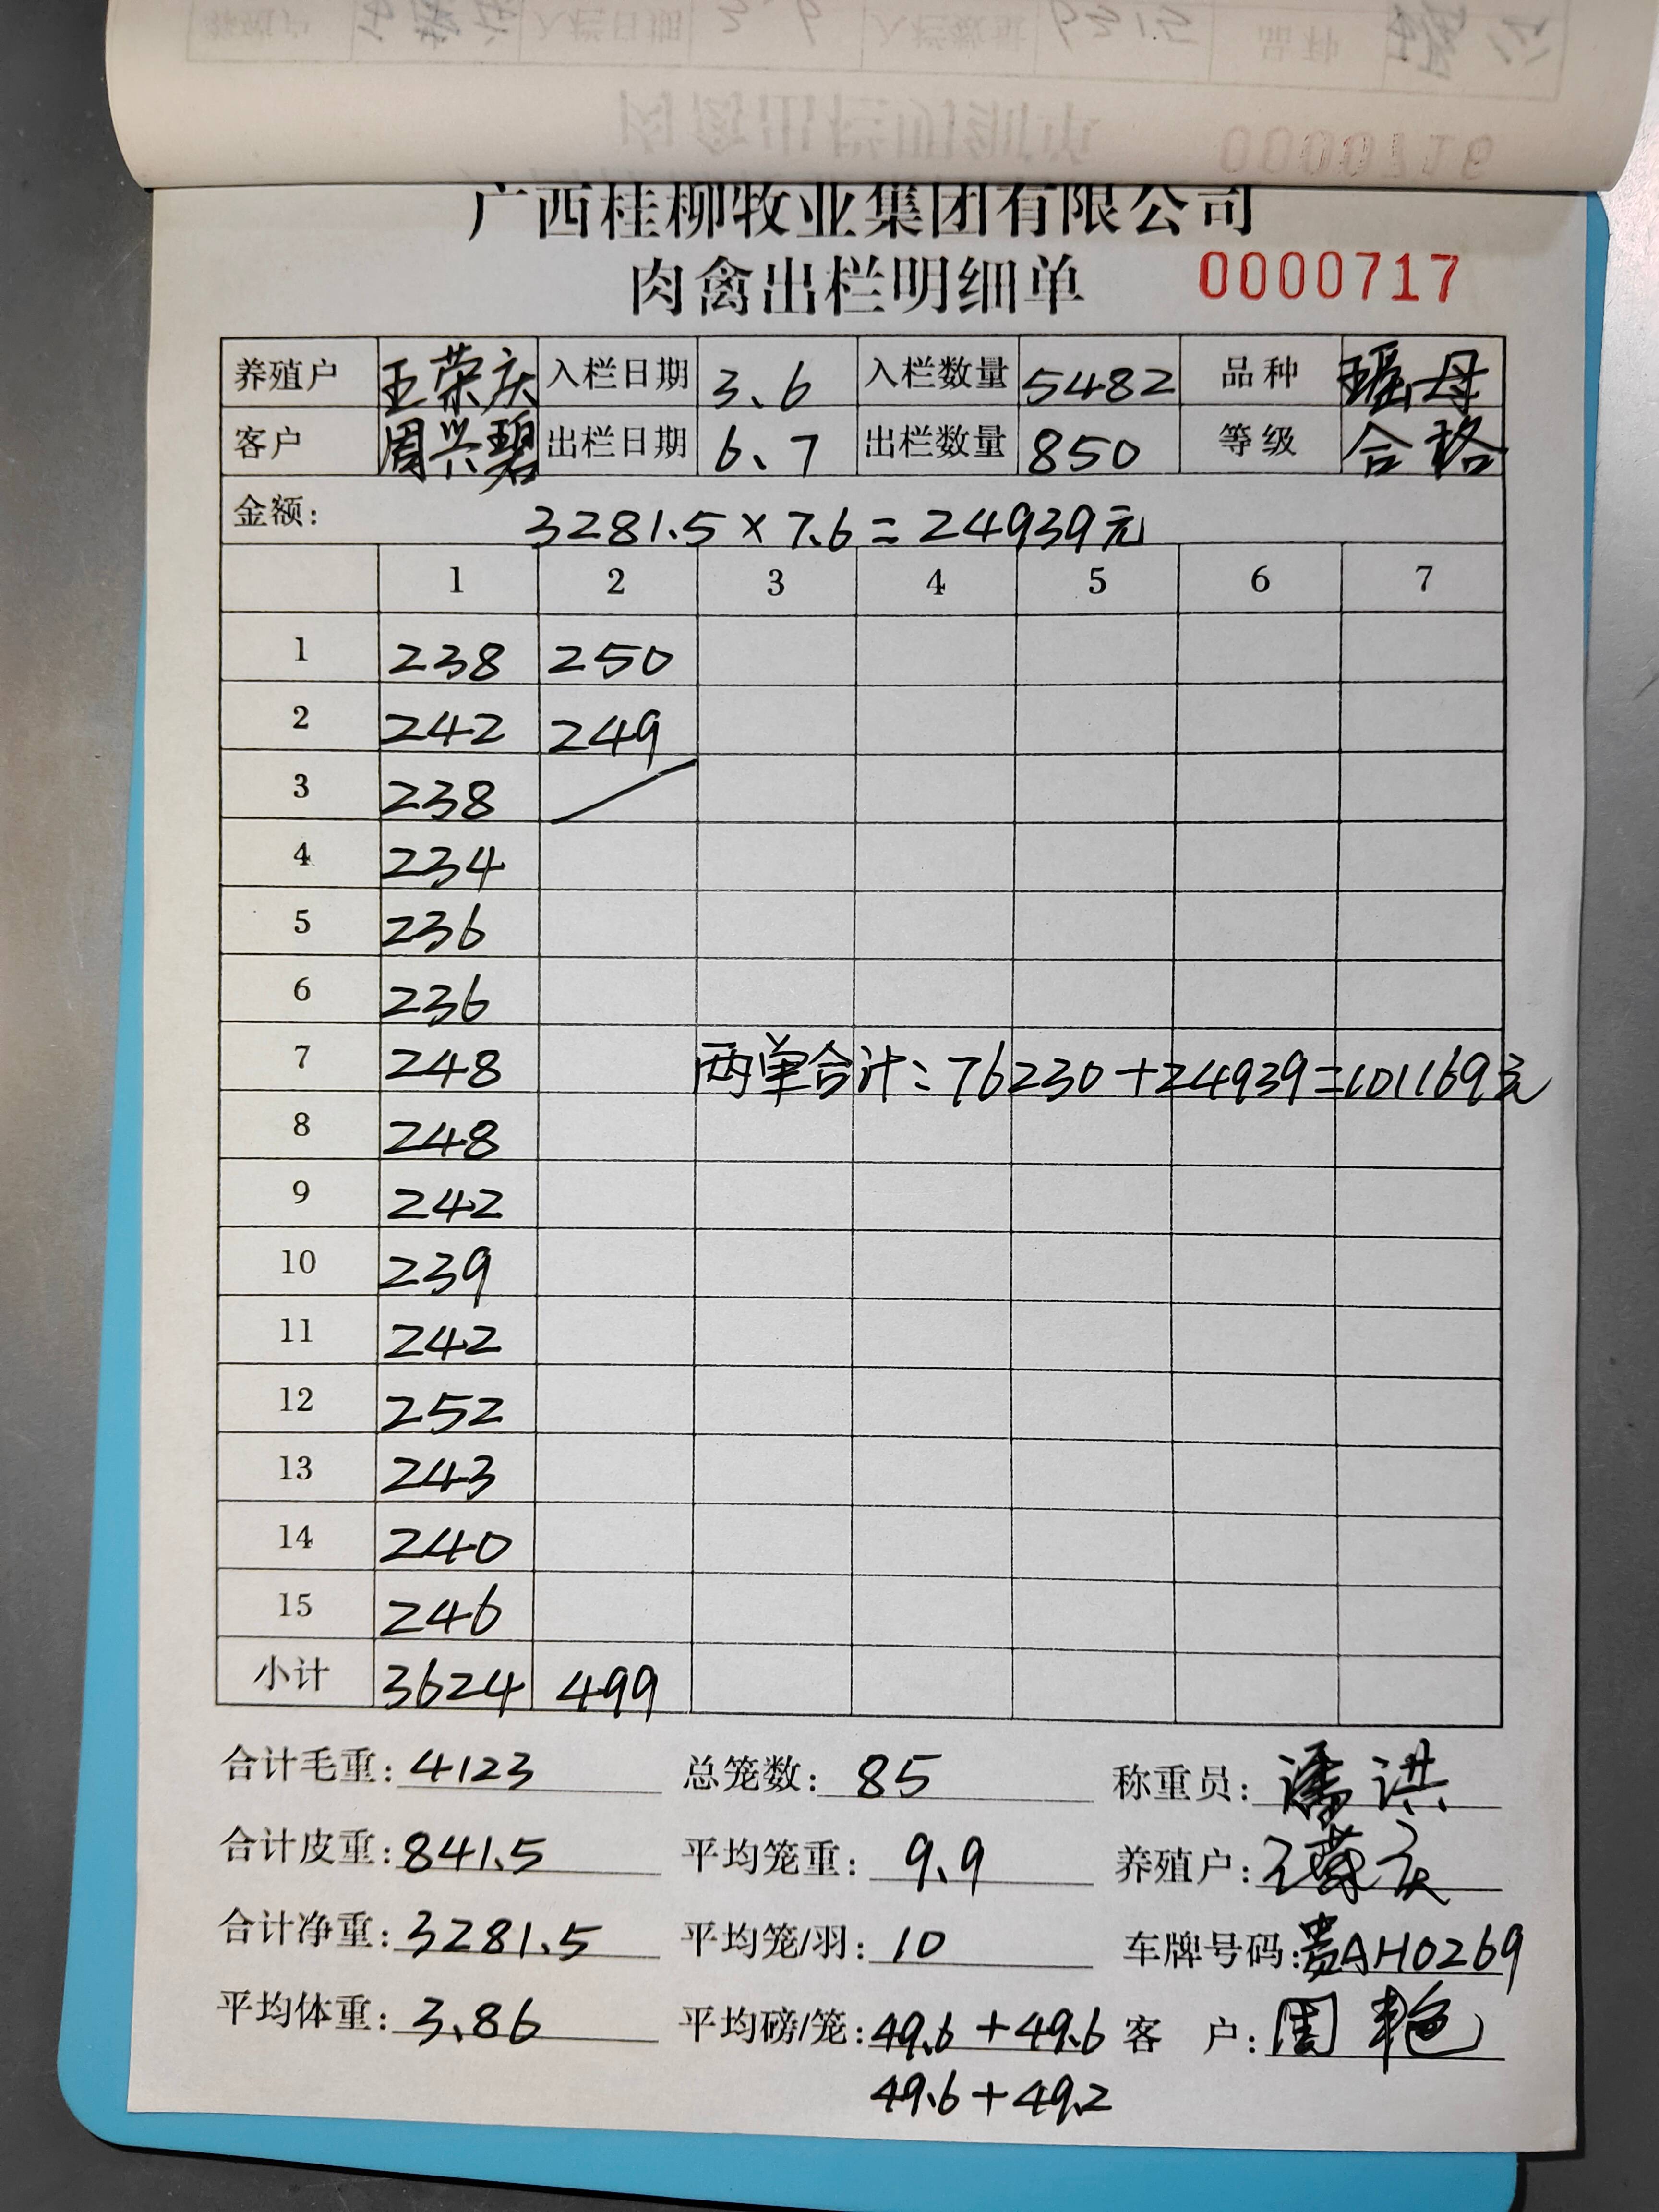 广西桂柳牧业集团有限公司
肉禽出栏明细单 0000717
养殖户 王荣庆 入栏日期 3.6 入栏数量 5482 品种 瑶母
客户 周兴碧 出栏日期 6.7 出栏数量 850 等级 合格
金额: 3281.5×7.6=24939元
1 2 3 4 5 6 7
1 238 250
2 242 249
3 238
4 234
5 236
6 236
7 248 两单合计:76230+24939=101169元
8 248
9 242
10 239
11 242
12 252
13 243
14 240
15 246
小计 3624 499
合计毛重:4123 总笼数:85 称重员:潘洪
合计皮重:841.5 平均笼重:9.9 养殖户:王荣庆
合计净重:3281.5 平均笼/羽:10 车牌号码:贵AH0269
平均体重:3.86 平均磅/笼:49.6+49.6 客户:周艳
49.6+49.2